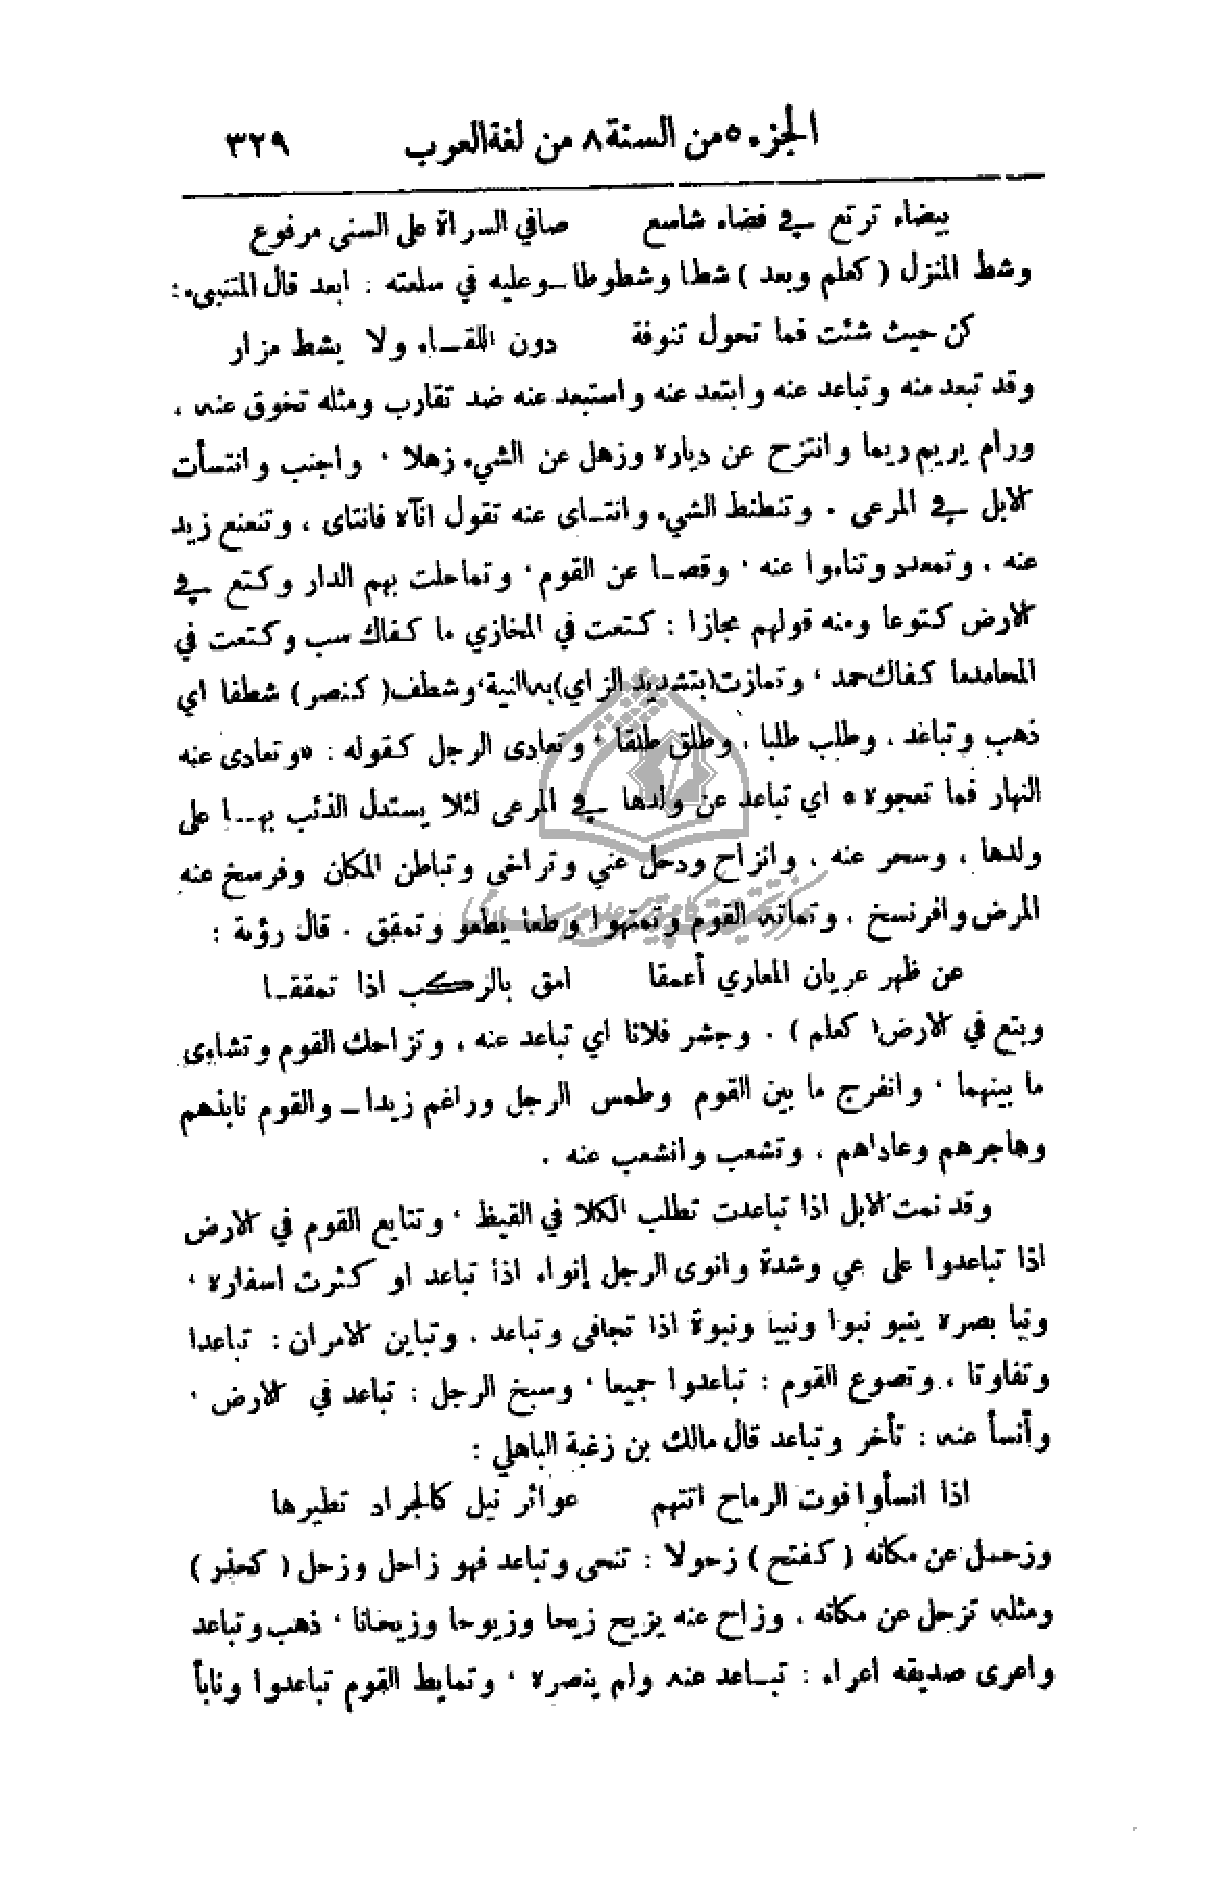 الجزء ٥ من السنة ٨ من لغة العرب ٣٢٩
بيضاء ترتع في فضاء شاسع صافي السراة على السنى مرفوع
وشط المنزل ( كعلم وبعد ) شطا وشطوطا ــ وعليه في سلعته : ابعد قال المتنبيء :
كن حيث شئت فما تحول تنوفة دون اللقـاء ولا يشط مزار
وقد تبعد منه وتباعد عنه وابتعد عنه واستبعد عنه ضد تقارب ومثله تخوق عنه ،
ورام يريم ريما وانتزح عن دياره وزهل عن الشيء زهلا ، واجنب وانتسأت
الابل في المرعى . وتنطنط الشيء وانتـاى عنه تقول انآه فانتاى ، وتنعنع زيد
عنه ، وتمعدد وتناءوا عنه ، وقصـا عن القوم ، وتماحلت بهم الدار وكتع في
الارض كتوعا ومنه قولهم مجازا : كتعت في المخازي ما كفاك سب وكتعت في
المحامد ما كفاك حمد ، وتمازت (بتشديد الزاي) به النية ، وشطف ( كنصر ) شطفا اي
ذهب وتباعد ، وطلب طلبا ، وطلق طلقا ، وتعادى الرجل كقوله : « وتعادى عنه
النهار فما تعجوه » اي تباعد عن ولدها في المرعى لئلا يستدل الذئب بهـا على
ولدها ، وسحر عنه ، وانزاح ودحل عني وتراخى وتباطن المكان وفرسخ عنه
المرض وافرنسخ ، وتماته القوم وتمتهوا وطعا يطعو وتمقق . قال رؤبة :
عن ظهر عريان المعاري أعمقا امق بالركب اذا تمققـا
وبتع في الارض ( كعلم ) . وجشر فلانا اي تباعد عنه ، وتزاحك القوم وتشاءى
ما بينهما ، وانفرج ما بين القوم وطمس الرجل وراغم زيدا ــ والقوم نابذهم
وهاجرهم وعاداهم ، وتشعب وانشعب عنه .
وقد نمت الابل اذا تباعدت تطلب الكلا في القيظ ، وتتايع القوم في الارض
اذا تباعدوا على عي وشدة وانوى الرجل إنواء اذا تباعد او كثرت اسفاره ،
ونبا بصره ينبو نبوا ونبيا ونبوة اذا تجافى وتباعد ، وتباين الامران : تباعدا
وتفاوتا ، وتصوع القوم : تباعدوا جميعا ، وسبخ الرجل : تباعد في الارض ،
وأنسأ عنه : تأخر وتباعد قال مالك بن زغبة الباهلي :
اذا انسأوا فوت الرماح اتتهم عوائر نبل كالجراد تطيرها
وزحـل عن مكانه ( كفتح ) زحولا : تنحى وتباعد فهو زاحل وزحل ( كحذر )
ومثله تزحل عن مكانه ، وزاح عنه يزيح زيحا وزيوحا وزيحانا ، ذهب وتباعد
واعرى صديقه اعراء : تبـاعد عنه ولم ينصره ، وتمايط القوم تباعدوا ونابأ